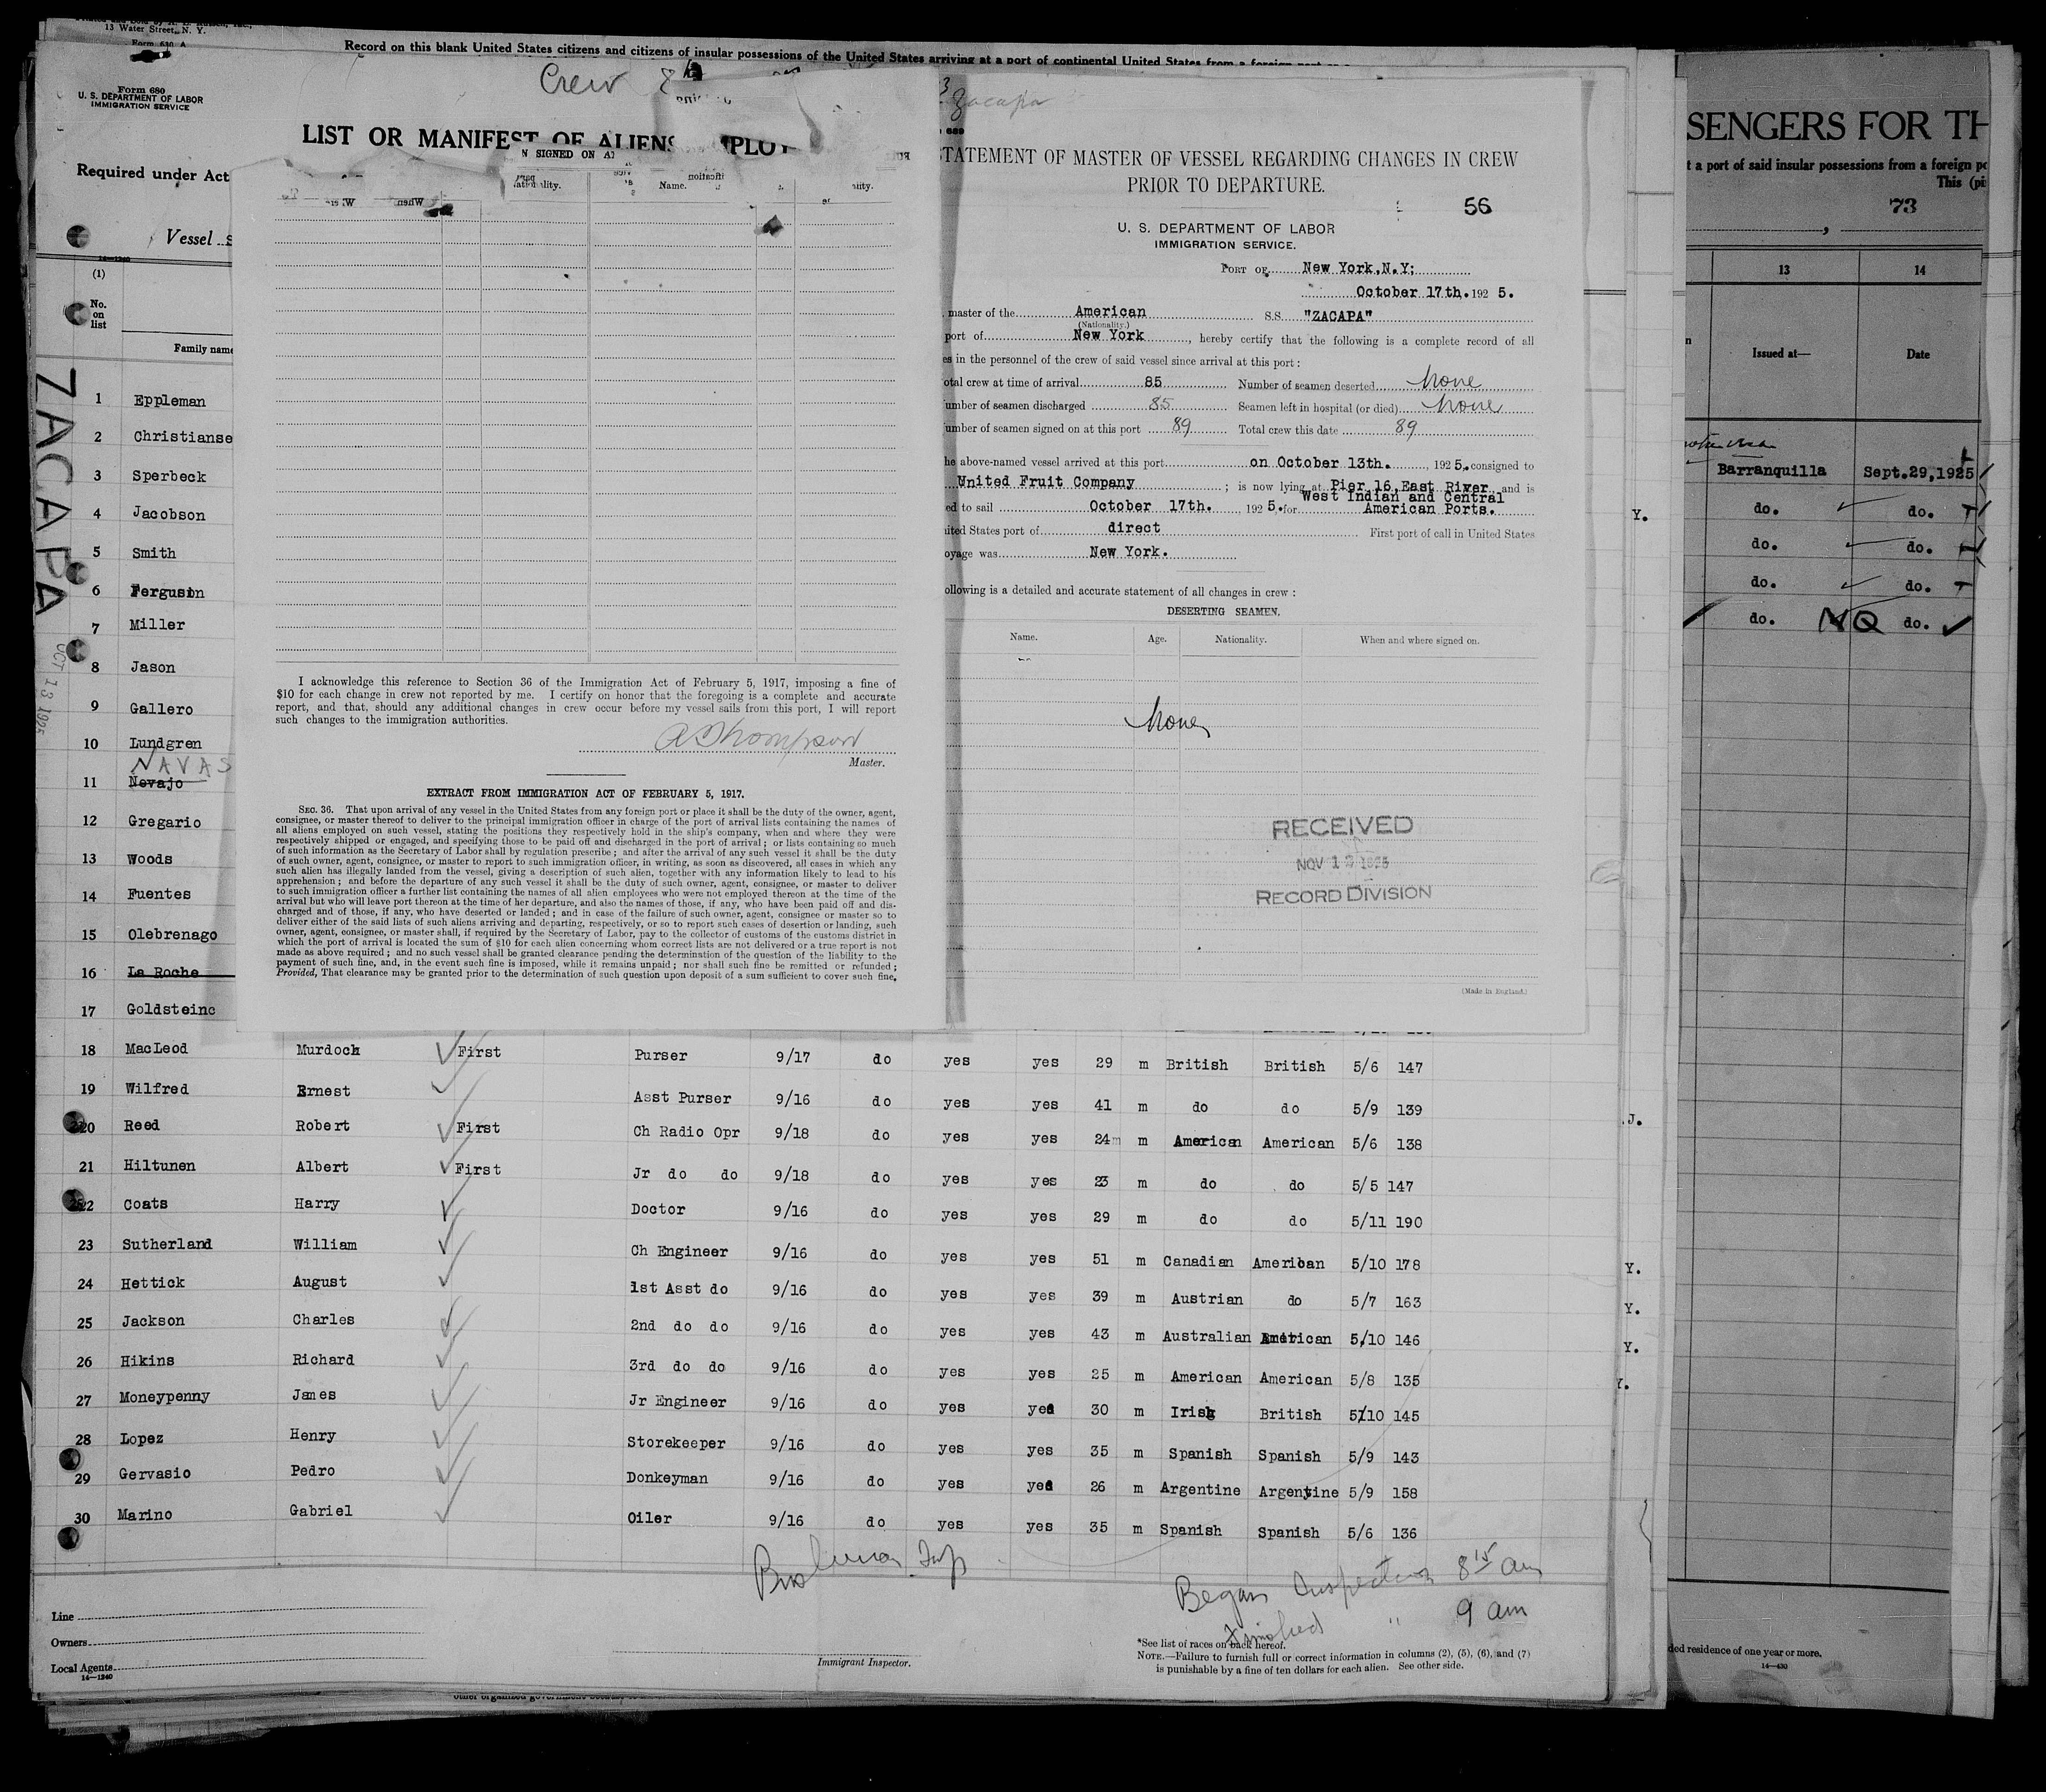 13 Water Street, N. Y.
Form 630 A
Record on this blank United States citizens and citizens of insular possessions of the United States arriving at a port of continental United States from a foreign port
Crew
Form 680
U. S. DEPARTMENT OF LABOR
IMMIGRATION SERVICE
LIST OR MANIFEST OF ALIENS
Required under Act
Vessel
(1)
No. on list
Family name
ZACAPA
OCT 13 1925
1 Eppleman
2 Christianse
3 Sperbeck
4 Jacobson
5 Smith
6 Ferguson
7 Miller
8 Jason
9 Gallero
10 Lundgren
NAVAS
11 Nevajo
12 Gregario
13 Woods
14 Fuentes
15 Olebrenago
16 La Roche
17 Goldsteinc
SIGNED ON
Name.
I acknowledge this reference to Section 36 of the Immigration Act of February 5, 1917, imposing a fine of
$10 for each change in crew not reported by me. I certify on honor that the foregoing is a complete and accurate
report, and that, should any additional changes in crew occur before my vessel sails from this port, I will report
such changes to the immigration authorities.
A Thompson
Master.
EXTRACT FROM IMMIGRATION ACT OF FEBRUARY 5, 1917.
SEC. 36. That upon arrival of any vessel in the United States from any foreign port or place it shall be the duty of the owner, agent,
consignee, or master thereof to deliver to the principal immigration officer in charge of the port of arrival lists containing the names of
all aliens employed on such vessel, stating the positions they respectively hold in the ship's company, when and where they were
respectively shipped or engaged, and specifying those to be paid off and discharged in the port of arrival; or lists containing so much
of such information as the Secretary of Labor shall by regulation prescribe; and after the arrival of any such vessel it shall be the duty
of such owner, agent, consignee, or master to report to such immigration officer, in writing, as soon as discovered, all cases in which any
such alien has illegally landed from the vessel, giving a description of such alien, together with any information likely to lead to his
apprehension; and before the departure of any such vessel it shall be the duty of such owner, agent, consignee, or master to deliver
to such immigration officer a further list containing the names of all alien employees who were not employed thereon at the time of the
arrival but who will leave port thereon at the time of her departure, and also the names of those, if any, who have been paid off and dis-
charged and of those, if any, who have deserted or landed; and in case of the failure of such owner, agent, consignee or master so to
deliver either of the said lists of such aliens arriving and departing, respectively, or so to report such cases of desertion or landing, such
owner, agent, consignee, or master shall, if required by the Secretary of Labor, pay to the collector of customs of the customs district in
which the port of arrival is located the sum of $10 for each alien concerning whom correct lists are not delivered or a true report is not
made as above required; and no such vessel shall be granted clearance pending the determination of the question of the liability to the
payment of such fine, and, in the event such fine is imposed, while it remains unpaid; nor shall such fine be remitted or refunded;
Provided, That clearance may be granted prior to the determination of such question upon deposit of a sum sufficient to cover such fine.
Zacapa
STATEMENT OF MASTER OF VESSEL REGARDING CHANGES IN CREW
PRIOR TO DEPARTURE.
56
U. S. DEPARTMENT OF LABOR
IMMIGRATION SERVICE.
PORT OF New York, N.Y;
October 17th. 192 5.
master of the American S.S. "ZACAPA"
(Nationality.)
port of New York, hereby certify that the following is a complete record of all
es in the personnel of the crew of said vessel since arrival at this port:
otal crew at time of arrival 85 Number of seamen deserted None
umber of seamen discharged 85 Seamen left in hospital (or died) None
umber of seamen signed on at this port 89 Total crew this date 89
he above-named vessel arrived at this port on October 13th., 192 5. consigned to
United Fruit Company; is now lying at Pier 16, East River and is
West Indian and Central
ed to sail October 17th. 192 5. for American Ports.
nited States port of direct First port of call in United States
oyage was New York.
ollowing is a detailed and accurate statement of all changes in crew:
DESERTING SEAMEN.
Name. Age. Nationality. When and where signed on.
None
RECEIVED
NOV 1
RECORD DIVISION
(Made in England.)
18 MacLeod Murdock First Purser 9/17 do yes yes 29 m British British 5/6 147
19 Wilfred Ernest Asst Purser 9/16 do yes yes 41 m do do 5/9 139
20 Reed Robert First Ch Radio Opr 9/18 do yes yes 24 m American American 5/6 138
21 Hiltunen Albert First Jr do do 9/18 do yes yes 23 m do do 5/5 147
22 Coats Harry Doctor 9/16 do yes yes 29 m do do 5/11 190
23 Sutherland William Ch Engineer 9/16 do yes yes 51 m Canadian American 5/10 178
24 Hettick August 1st Asst do 9/16 do yes yes 39 m Austrian do 5/7 163
25 Jackson Charles 2nd do do 9/16 do yes yes 43 m Australian American 5/10 146
26 Hikins Richard 3rd do do 9/16 do yes yes 25 m American American 5/8 135
27 Moneypenny James Jr Engineer 9/16 do yes yes 30 m Irish British 5/10 145
28 Lopez Henry Storekeeper 9/16 do yes yes 35 m Spanish Spanish 5/9 143
29 Gervasio Pedro Donkeyman 9/16 do yes yes 26 m Argentine Argentine 5/9 158
30 Marino Gabriel Oiler 9/16 do yes yes 35 m Spanish Spanish 5/6 136
Began Inspection 8 15 am
Finished " 9 am
Line
Owners
Local Agents
14—1240
Immigrant Inspector.
*See list of races on back hereof.
NOTE.—Failure to furnish full or correct information in columns (2), (5), (6), and (7)
is punishable by a fine of ten dollars for each alien. See other side.
Y.
J.
Y.
Y.
Y.
Y.
SENGERS FOR TH
t a port of said insular possessions from a foreign po
This (pi
73
13 14
Issued at— Date
Barranquilla Sept.29,1925
do. do.
do. do.
do. do.
do. NQ do.
ded residence of one year or more.
14—430